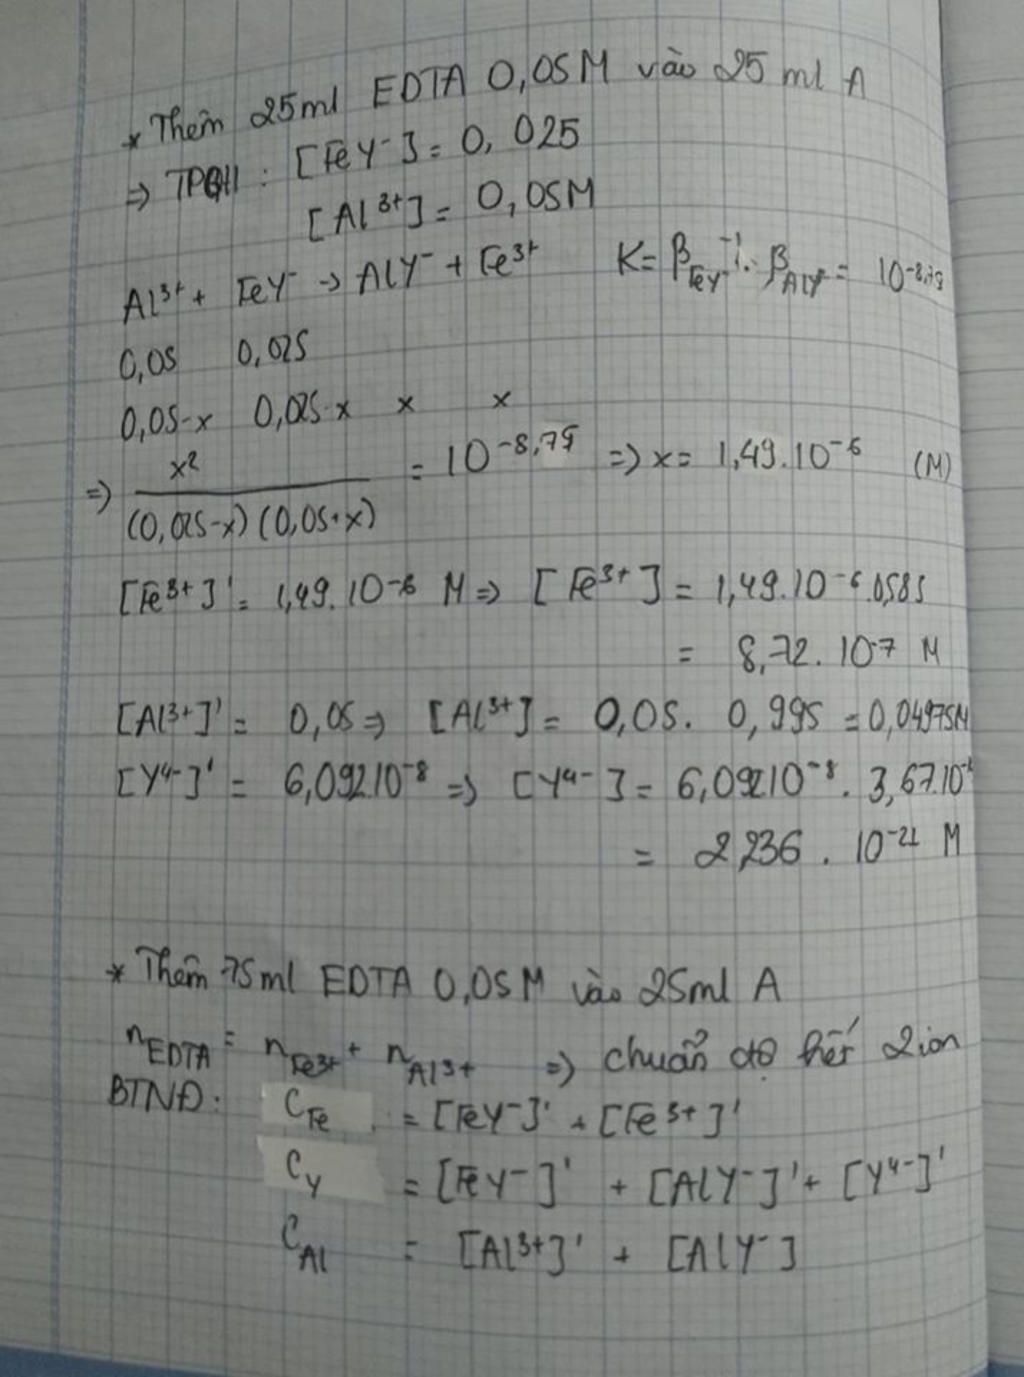 * Thêm 25ml EDTA 0,05M vào 25 ml A
=> TPGH: [FeY⁻] = 0,025
[Al³⁺] = 0,05M
Al³⁺ + FeY⁻ → AlY⁻ + Fe³⁺ K = β_FeY⁻⁻¹ . β_AlY⁻ = 10⁻⁸,⁷⁵
0,05 0,025
0,05-x 0,025-x x x
=> x² / (0,025-x)(0,05-x) = 10⁻⁸,⁷⁵ => x = 1,49.10⁻⁶ (M)
[Fe³⁺]' = 1,49.10⁻⁶ M => [Fe³⁺] = 1,49.10⁻⁶.0,585
= 8,72.10⁻⁷ M
[Al³⁺]' = 0,05 => [Al³⁺] = 0,05. 0,995 = 0,04975M
[Y⁴⁻]' = 6,092.10⁻⁸ => [Y⁴⁻] = 6,092.10⁻⁸. 3,67.10
= 2,236. 10⁻²¹ M
* Thêm 75ml EDTA 0,05M vào 25ml A
n_EDTA = n_Fe³⁺ + n_Al³⁺ => chuẩn độ hết 2 ion
BTNĐ: C_Fe = [FeY⁻]' + [Fe³⁺]'
C_Y = [FeY⁻]' + [AlY⁻]' + [Y⁴⁻]'
C_Al = [Al³⁺]' + [AlY⁻]